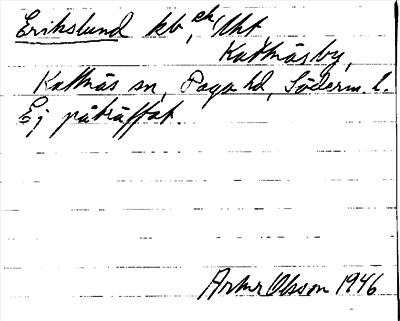 Erikslund kb, ek, Uht
Kattnäs by,
Kattnäs sn, Daga hd, Söderm. l.
Ej påträffat.
Artur Olsson 1946